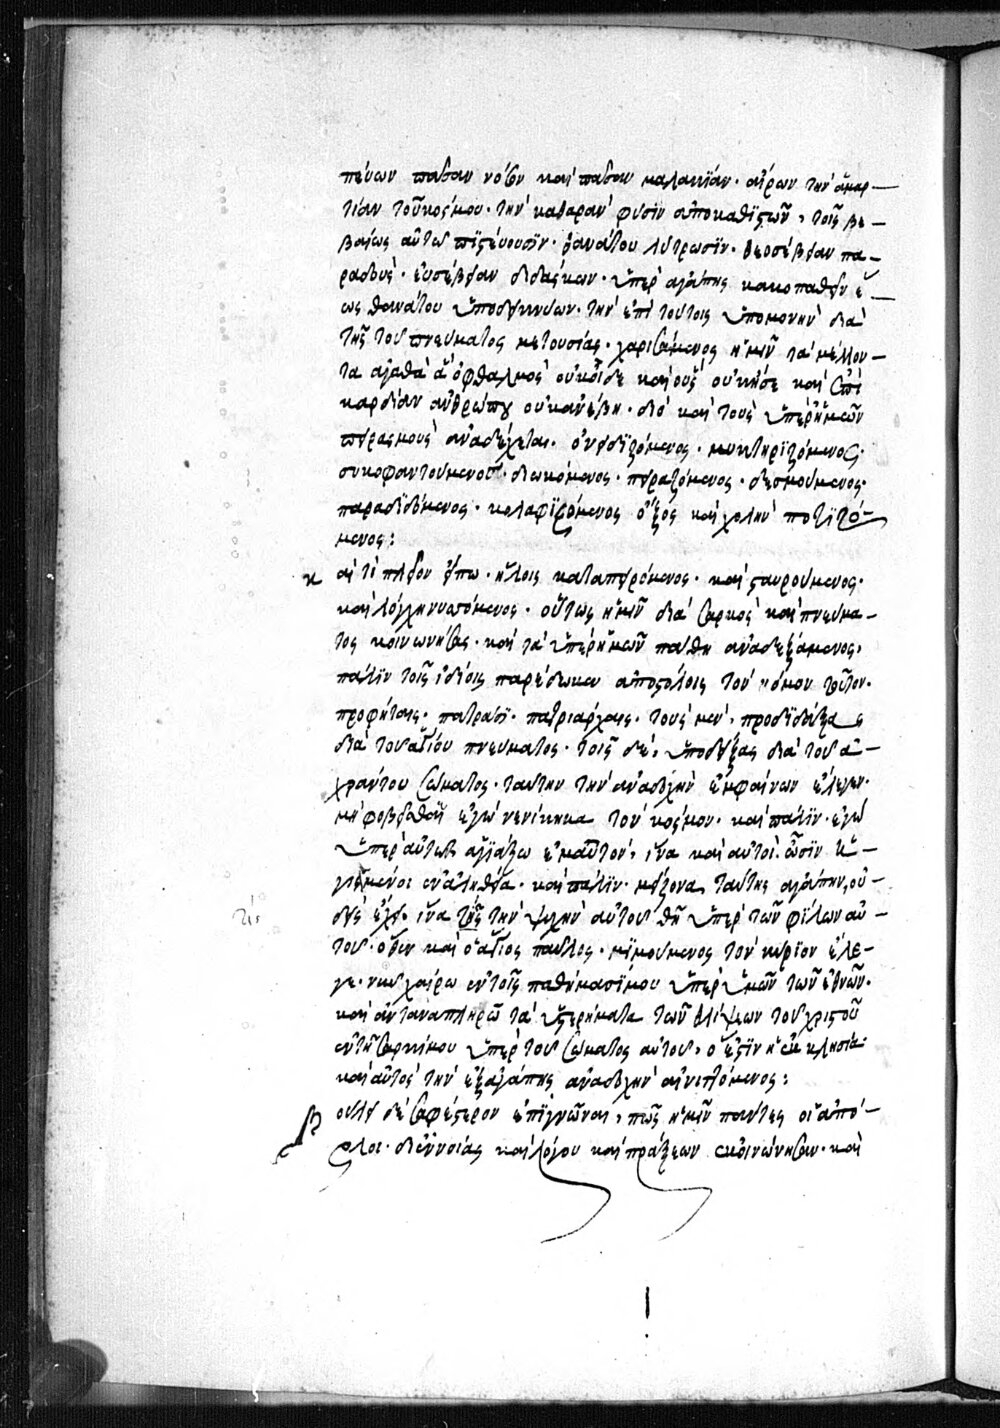 πεύων πᾶσαν νόσον καὶ πᾶσαν μαλακίαν· αἴρων τὴν ἁμαρ-
τίαν τοῦ κόσμου· τὴν καθαρὰν φύσιν ἀποκαθιστῶν, τοῖς βε-
βαίως αὐτῷ πιστεύουσιν· θανάτου λύτρωσιν· θεοσέβειαν πα-
ρασχὼν· εὐσέβειαν διδάσκων· ὑπὲρ ἀγάπης κακοπαθεῖν ἕ-
ως θανάτου ὑποδεικνύων· τὴν ἐπὶ τούτοις ὑπομονὴν διὰ
τῆς τοῦ πνεύματος μετουσίας· χαρισάμενος ἡμῖν τὰ μέλλον-
τα ἀγαθὰ ἃ ὀφθαλμὸς οὐκ οἶδε καὶ οὖς οὐκ ἤκουσε καὶ ἐπὶ
καρδίαν ἀνθρώπου οὐκ ἀνέβη· διὸ καὶ τοὺς ὑπὲρ ἡμῶν
πειρασμοὺς ἀναδέχεται· ὀνειδιζόμενος· μυκτηριζόμενος·
συκοφαντούμενος· διωκόμενος· πειραζόμενος· δεσμούμενος·
παραδιδόμενος· κολαφιζόμενος ὄξος καὶ χολὴν ποτιζό-
μενος:
καὶ τί πλέον εἴπω· ἥλοις καταπειρόμενος· καὶ σταυρούμενος·
καὶ λόγχῃ νυττόμενος· οὕτως ἡμῖν διὰ σαρκὸς καὶ πνεύμα-
τος κοινωνήσας· καὶ τὰ ὑπὲρ ἡμῶν πάθη ἀναδεξάμενος,
πάλιν τοῖς ἰδίοις παρέδωκεν ἀποστόλοις τὸν νόμον τοῦτον·
προφήταις· πατράσι· πατριάρχαις· τοὺς μὲν, προδιδάξας
διὰ τοῦ ἁγίου πνεύματος· τοῖς δὲ, ὑποδείξας διὰ τοῦ ἀ-
χράντου σώματος· ταύτην τὴν ἀναδοχὴν ἐμφαίνων ἔλεγεν·
μὴ φοβεῖσθαι ἐγὼ νενίκηκα τὸν κόσμον· καὶ πάλιν· ἐγὼ
ὑπὲρ αὐτῶν ἁγιάζω ἐμαυτὸν, ἵνα καὶ αὐτοὶ ὦσιν ἡ-
γιασμένοι ἐν ἀληθείᾳ· καὶ πάλιν· μείζονα ταύτης ἀγάπην, οὐ-
δεὶς ἔχει· ἵνα τις τὴν ψυχὴν αὐτοῦ θῇ ὑπὲρ τῶν φίλων αὐ-
τοῦ· ὅθεν καὶ ὁ ἅγιος παῦλος· μιμούμενος τὸν κύριον ἔλε-
γε· νῦν χαίρω ἐν τοῖς παθήμασί μου ὑπὲρ ὑμῶν τῶν ἐθνῶν·
καὶ ἀνταναπληρῶ τὰ ὑστερήματα τῶν θλίψεων τοῦ χριστοῦ
ἐν τῇ σαρκί μου ὑπὲρ τοῦ σώματος αὐτοῦ, ὅ ἐστιν ἡ ἐκκλησία·
καὶ αὐτὸς τὴν ἐξ ἀγάπης ἀναδοχὴν αἰνιττόμενος:
βούλει δὲ σαφέστερον ἐπιγνῶναι, πῶς ἡμῖν πάντες οἱ ἀπό-
στολοι· δι᾽ ἐννοίας καὶ λόγου καὶ πράξεων ἐκοινώνησαν· καὶ